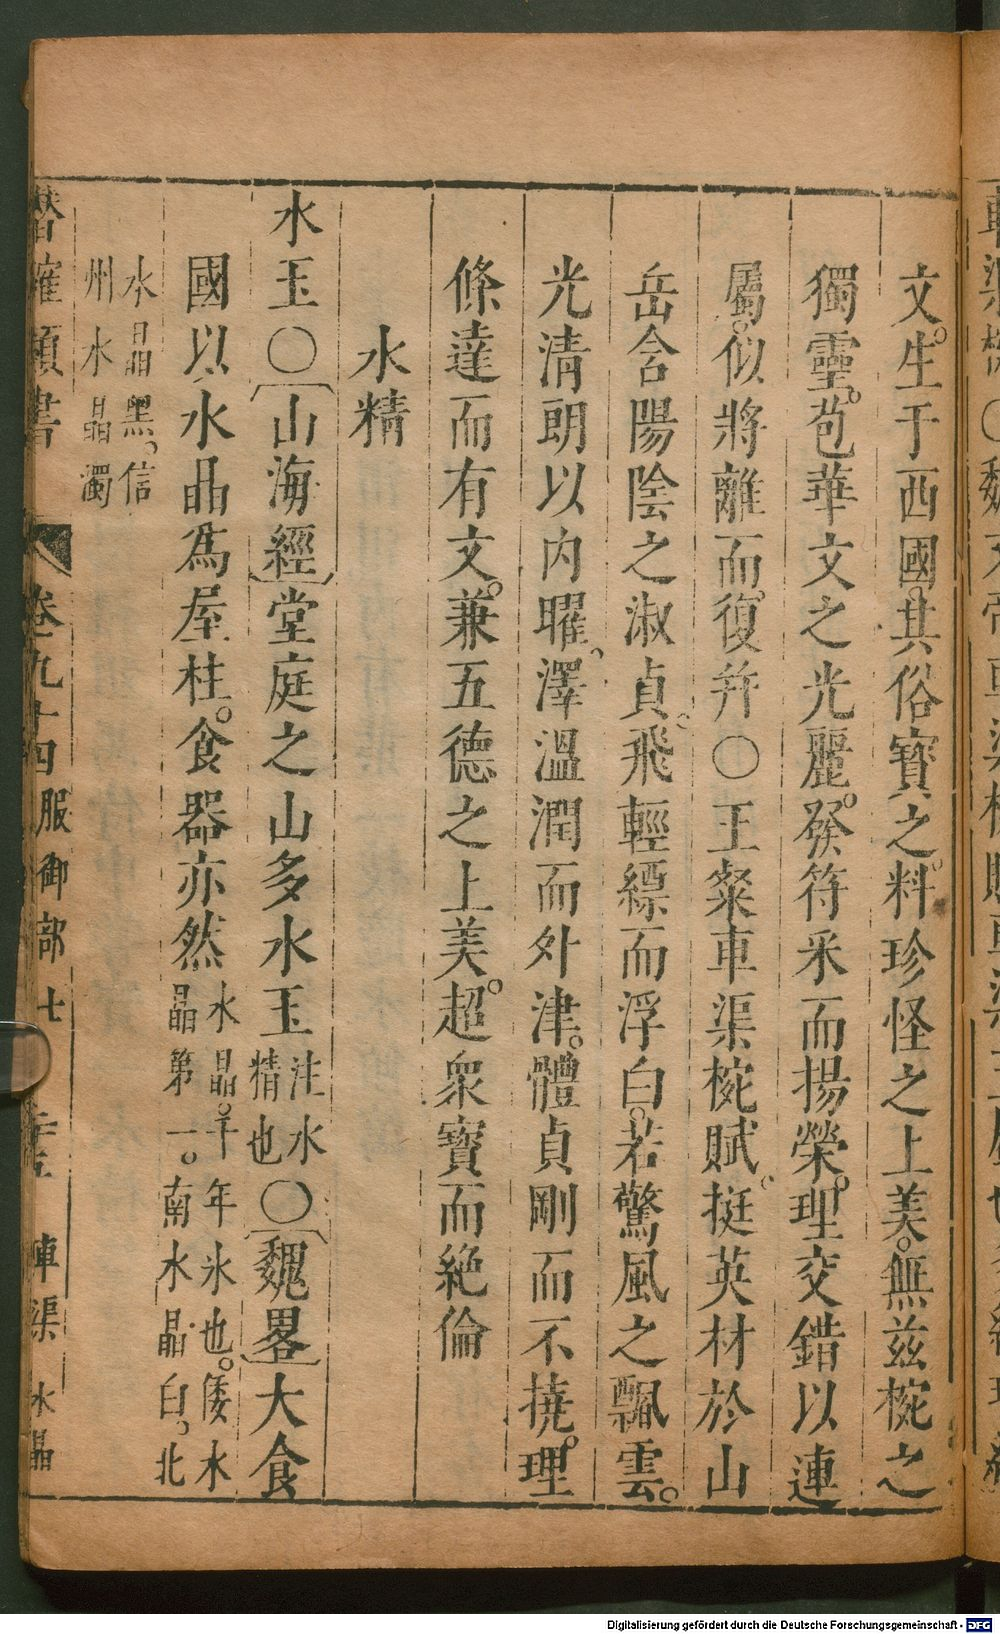 文生于西國其俗寳之料珍怪之上美無兹椀之
獨靈苞華文之光麗發符釆而揚榮理交錯以連
屬似將離而復幷〇王粲車渠椀賦挺英材於山
岳含陽陰之淑貞飛輕縹而浮白若驚風之飄雲
光清朗以内曜澤溫潤而外津體貞剛而不撓理
條達而有文兼五德之上美超衆寳而絶倫
水精
水玉〇〔山海經〕堂庭之山多水玉注水精也〇〔魏畧〕大食
國以水晶爲屋柱食器亦然水晶千年氷也倭水晶第一南水晶白北
水晶黑信州水晶濁
潛確類書 卷九十四 服御部七 車渠 水晶
Digitalisierung gefördert durch die Deutsche Forschungsgemeinschaft - DFG